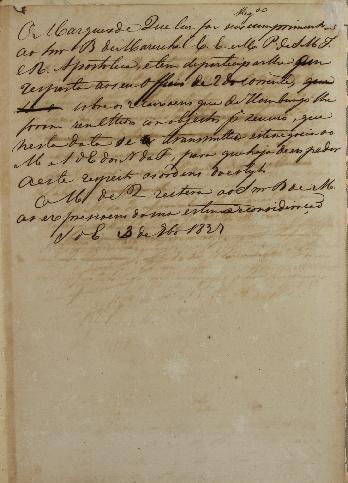 O Marquez de Queluz faz seus cumprimentos
ao Snr B. de Mareschal E. E. e M. P. de S. M. I.
e R. Apostolica, e tem de participar lhe em
resposta ao seu Officio de 2 do corrente, que
sobre os 2 caixoens que de Hamburgo lhe
foram remettidos con objectos p. seu uso, que
nesta data se transmitte este negocio ao
M. e S d'E dos N da F, para que haja de expedir
a este respeito as ordens do estylo.
O M. de Q. reitera ao Snr B de M.
as expressoens da sua estima e consideração
S d'E 3 de 1827